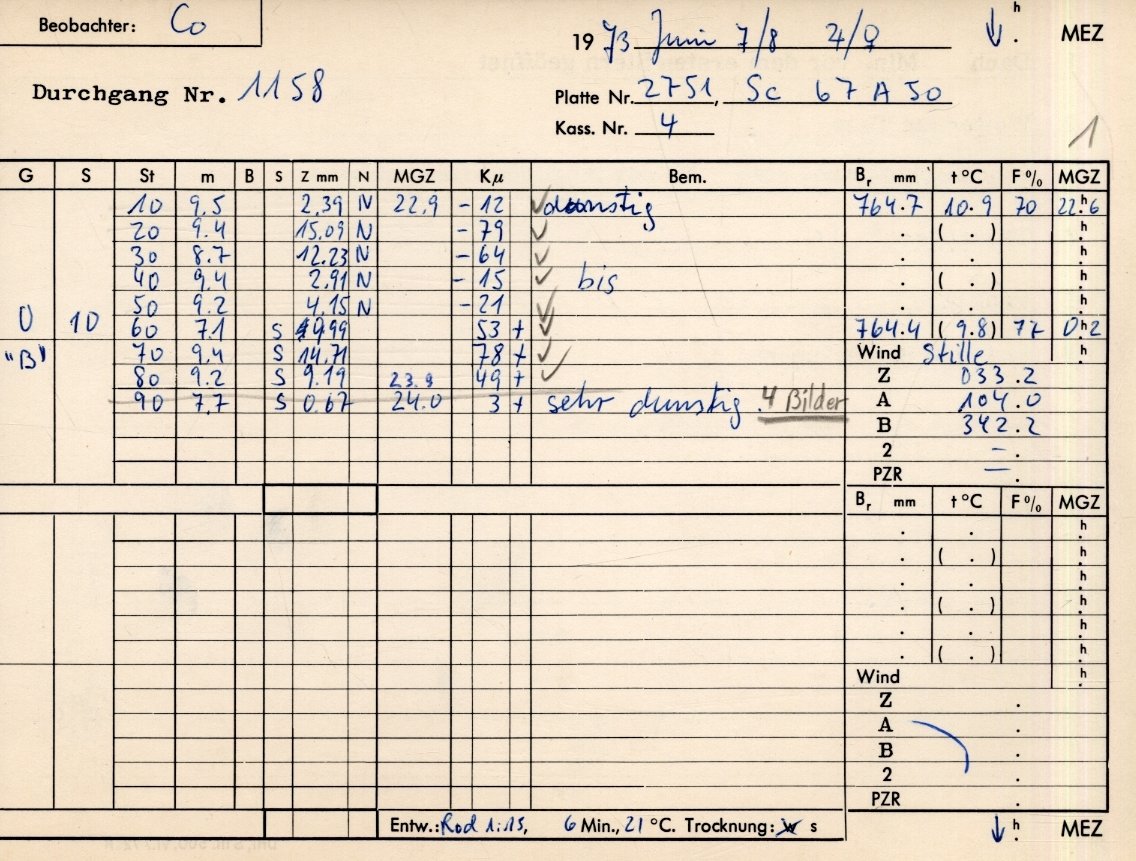 Beobachter: Co
1973 Juni 7/8 ♃/♀ h . MEZ
Durchgang Nr. 1158
Platte Nr. 2751, Sc 67 A 50
Kass. Nr. 4
1
G S St m B S Z mm N MGZ Kμ Bem. Br mm t °C F % MGZ
10 9.5 2.39 N 22.9 - 12 ✓ dunstig 764.7 10.9 70 22.h6
20 9.4 15.09 N - 79 ✓ . ( . ) h
30 8.7 12.23 N - 64 ✓ . . h
40 9.4 2.91 N - 15 ✓ bis . ( . ) h
50 9.2 4.15 N - 21 ✓ . . h
0 10 60 7.1 S 9.99 53 + ✓ 764.4 ( 9.8) 77 0.h2
"B" 70 9.4 S 14.71 78 + ✓ Wind Stille h
80 9.2 S 9.19 23.9 49 + ✓ Z 033.2
90 7,7 S 0.67 24.0 3 + sehr dunstig. 4 Bilder A 104.0
B 342.2
2 – .
PZR – .
Br mm t °C F % MGZ
. . h
. ( . ) h
. . h
. ( . ) h
. . h
. ( . ) h
Wind h
Z .
A .
B .
2 .
PZR .
Entw.: Rod 1:15, 6 Min., 21 °C. Trocknung: w s h . MEZ